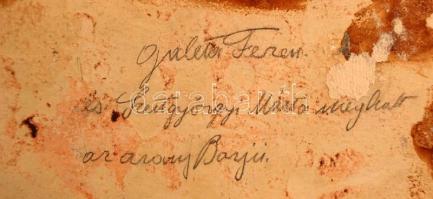 Galetta Ferenc
és Szentgyörgyi Márta meghatt
az arany Borjú.